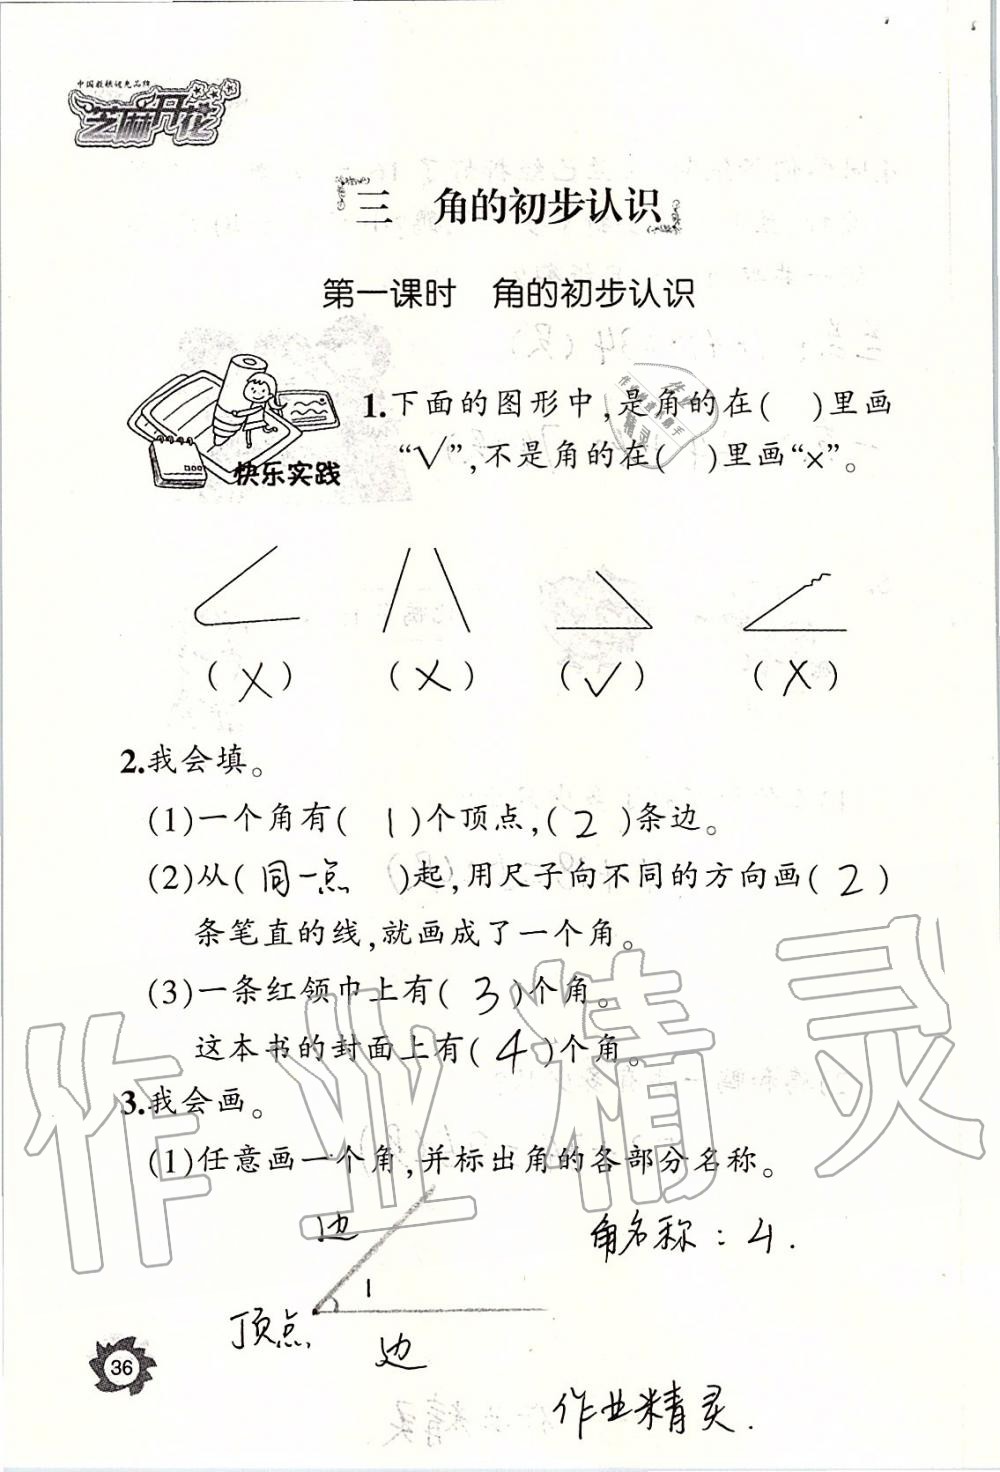 中国教辅优先品牌
芝麻开花
三 角的初步认识
第一课时 角的初步认识
快乐实践
1.下面的图形中,是角的在( )里画
“√”,不是角的在( )里画“×”。
(×) (×) (√) (×)
2.我会填。
(1)一个角有( 1 )个顶点,( 2 )条边。
(2)从( 同一点 )起,用尺子向不同的方向画( 2 )
条笔直的线,就画成了一个角。
(3)一条红领巾上有( 3 )个角。
这本书的封面上有( 4 )个角。
3.我会画。
(1)任意画一个角,并标出角的各部分名称。
边
角名称:4.
1
顶点
边
36
作业精灵.
作业精灵